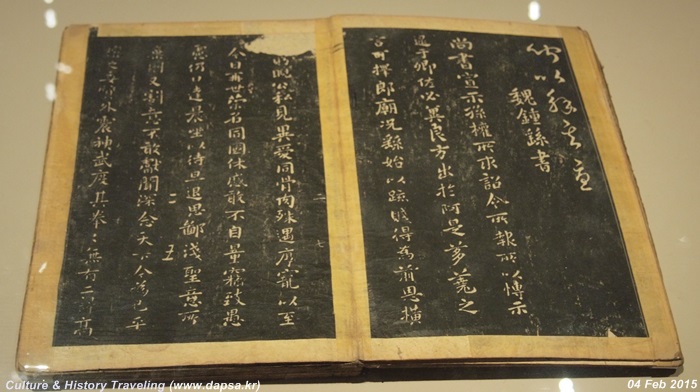 魏鍾繇書
尚書宣示孫權所求詔令所報所以博示
逮于卿佐必冀良方出於阿是芻蕘之
言可擇郎廟況繇始以疏賤得為前恩橫
盱睨公私見異愛同骨肉殊遇厚寵以至
今日再世榮名同國休慼敢不自量竊致愚
慮仍日達晨坐以待旦退思鄙淺聖意所
棄則又割意不敢獻聞深念天下今為已平
權之委質外震神武度其拳々無有二計高
Culture & History Traveling (www.dapsa.kr)
04 Feb 2015